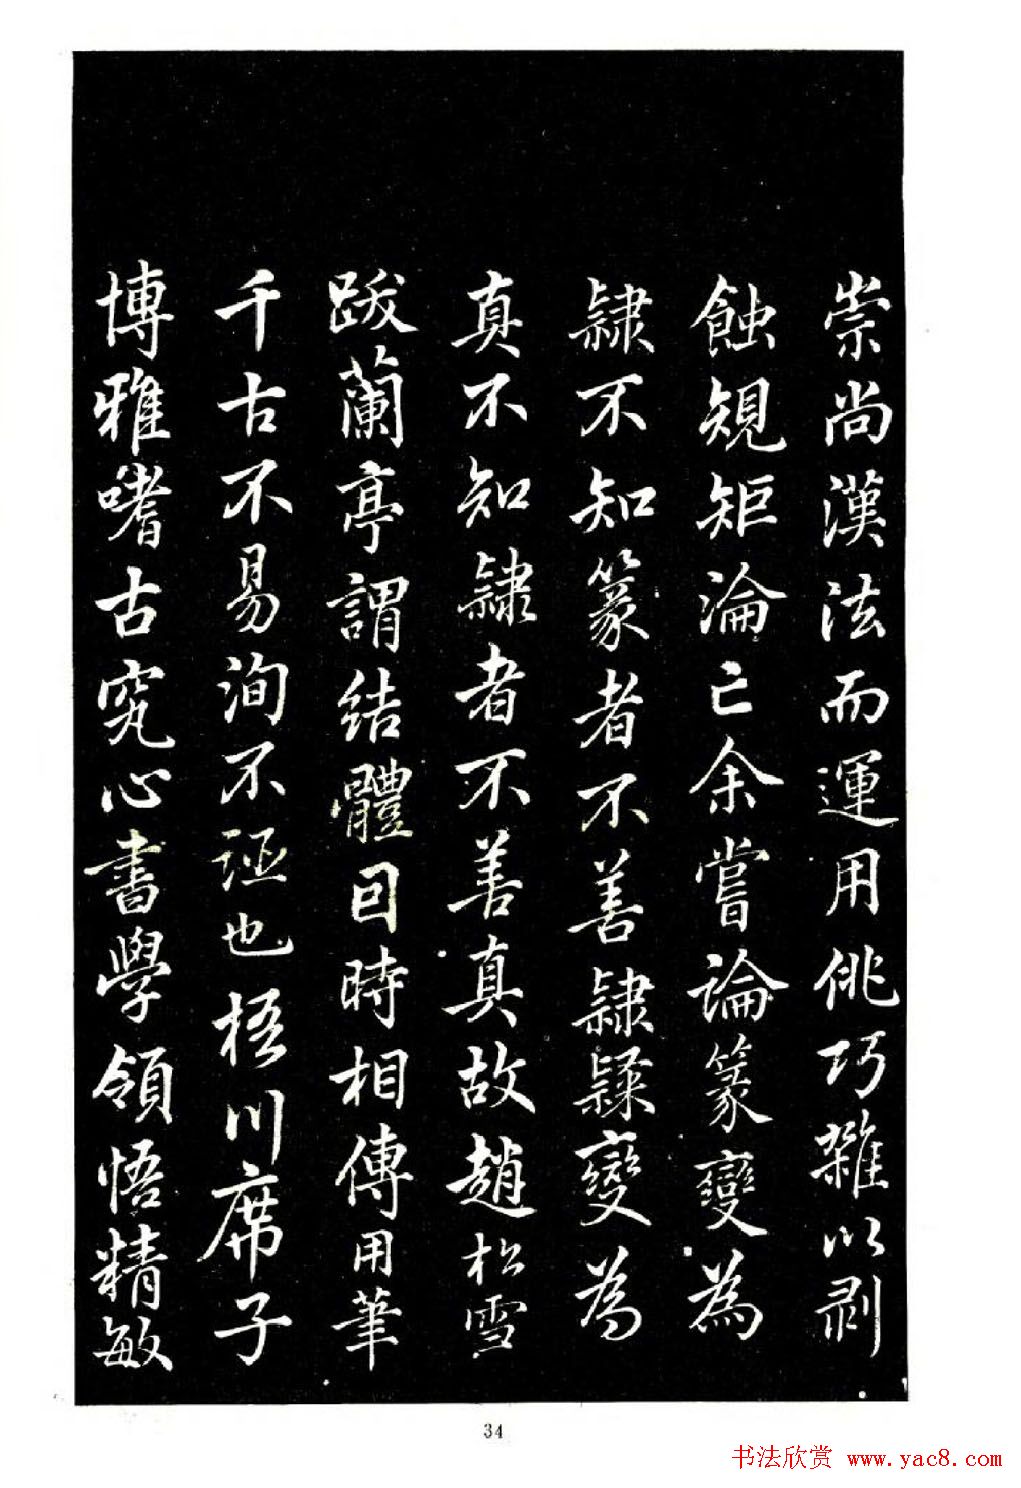 崇尚漢法而運用佻巧雜以剥
蝕規矩淪亡余嘗論篆變為
隸不知篆者不善隸隸變為
真不知隸者不善真故趙松雪
跋蘭亭謂結體因時相傳用筆
千古不易洵不誣也梧川席子
博雅嗜古究心書學領悟精敏
34
书法欣赏 www.yac8.com